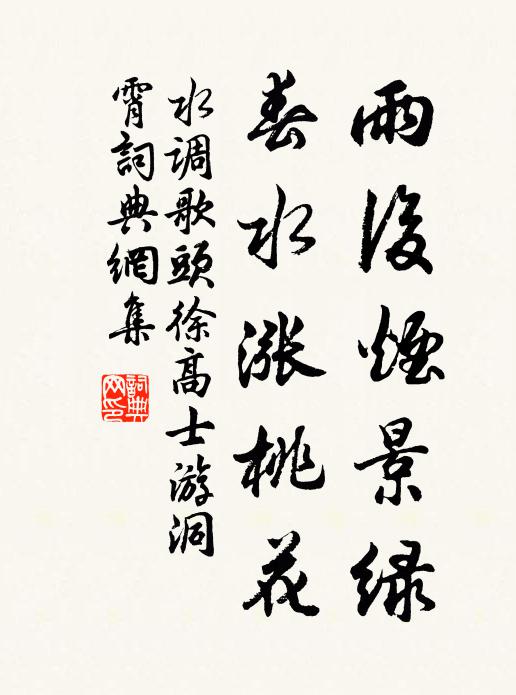 雨後煙景綠
春水漲桃花
水調歌頭徐高士游洞
霄詞典網集
詞典
网印